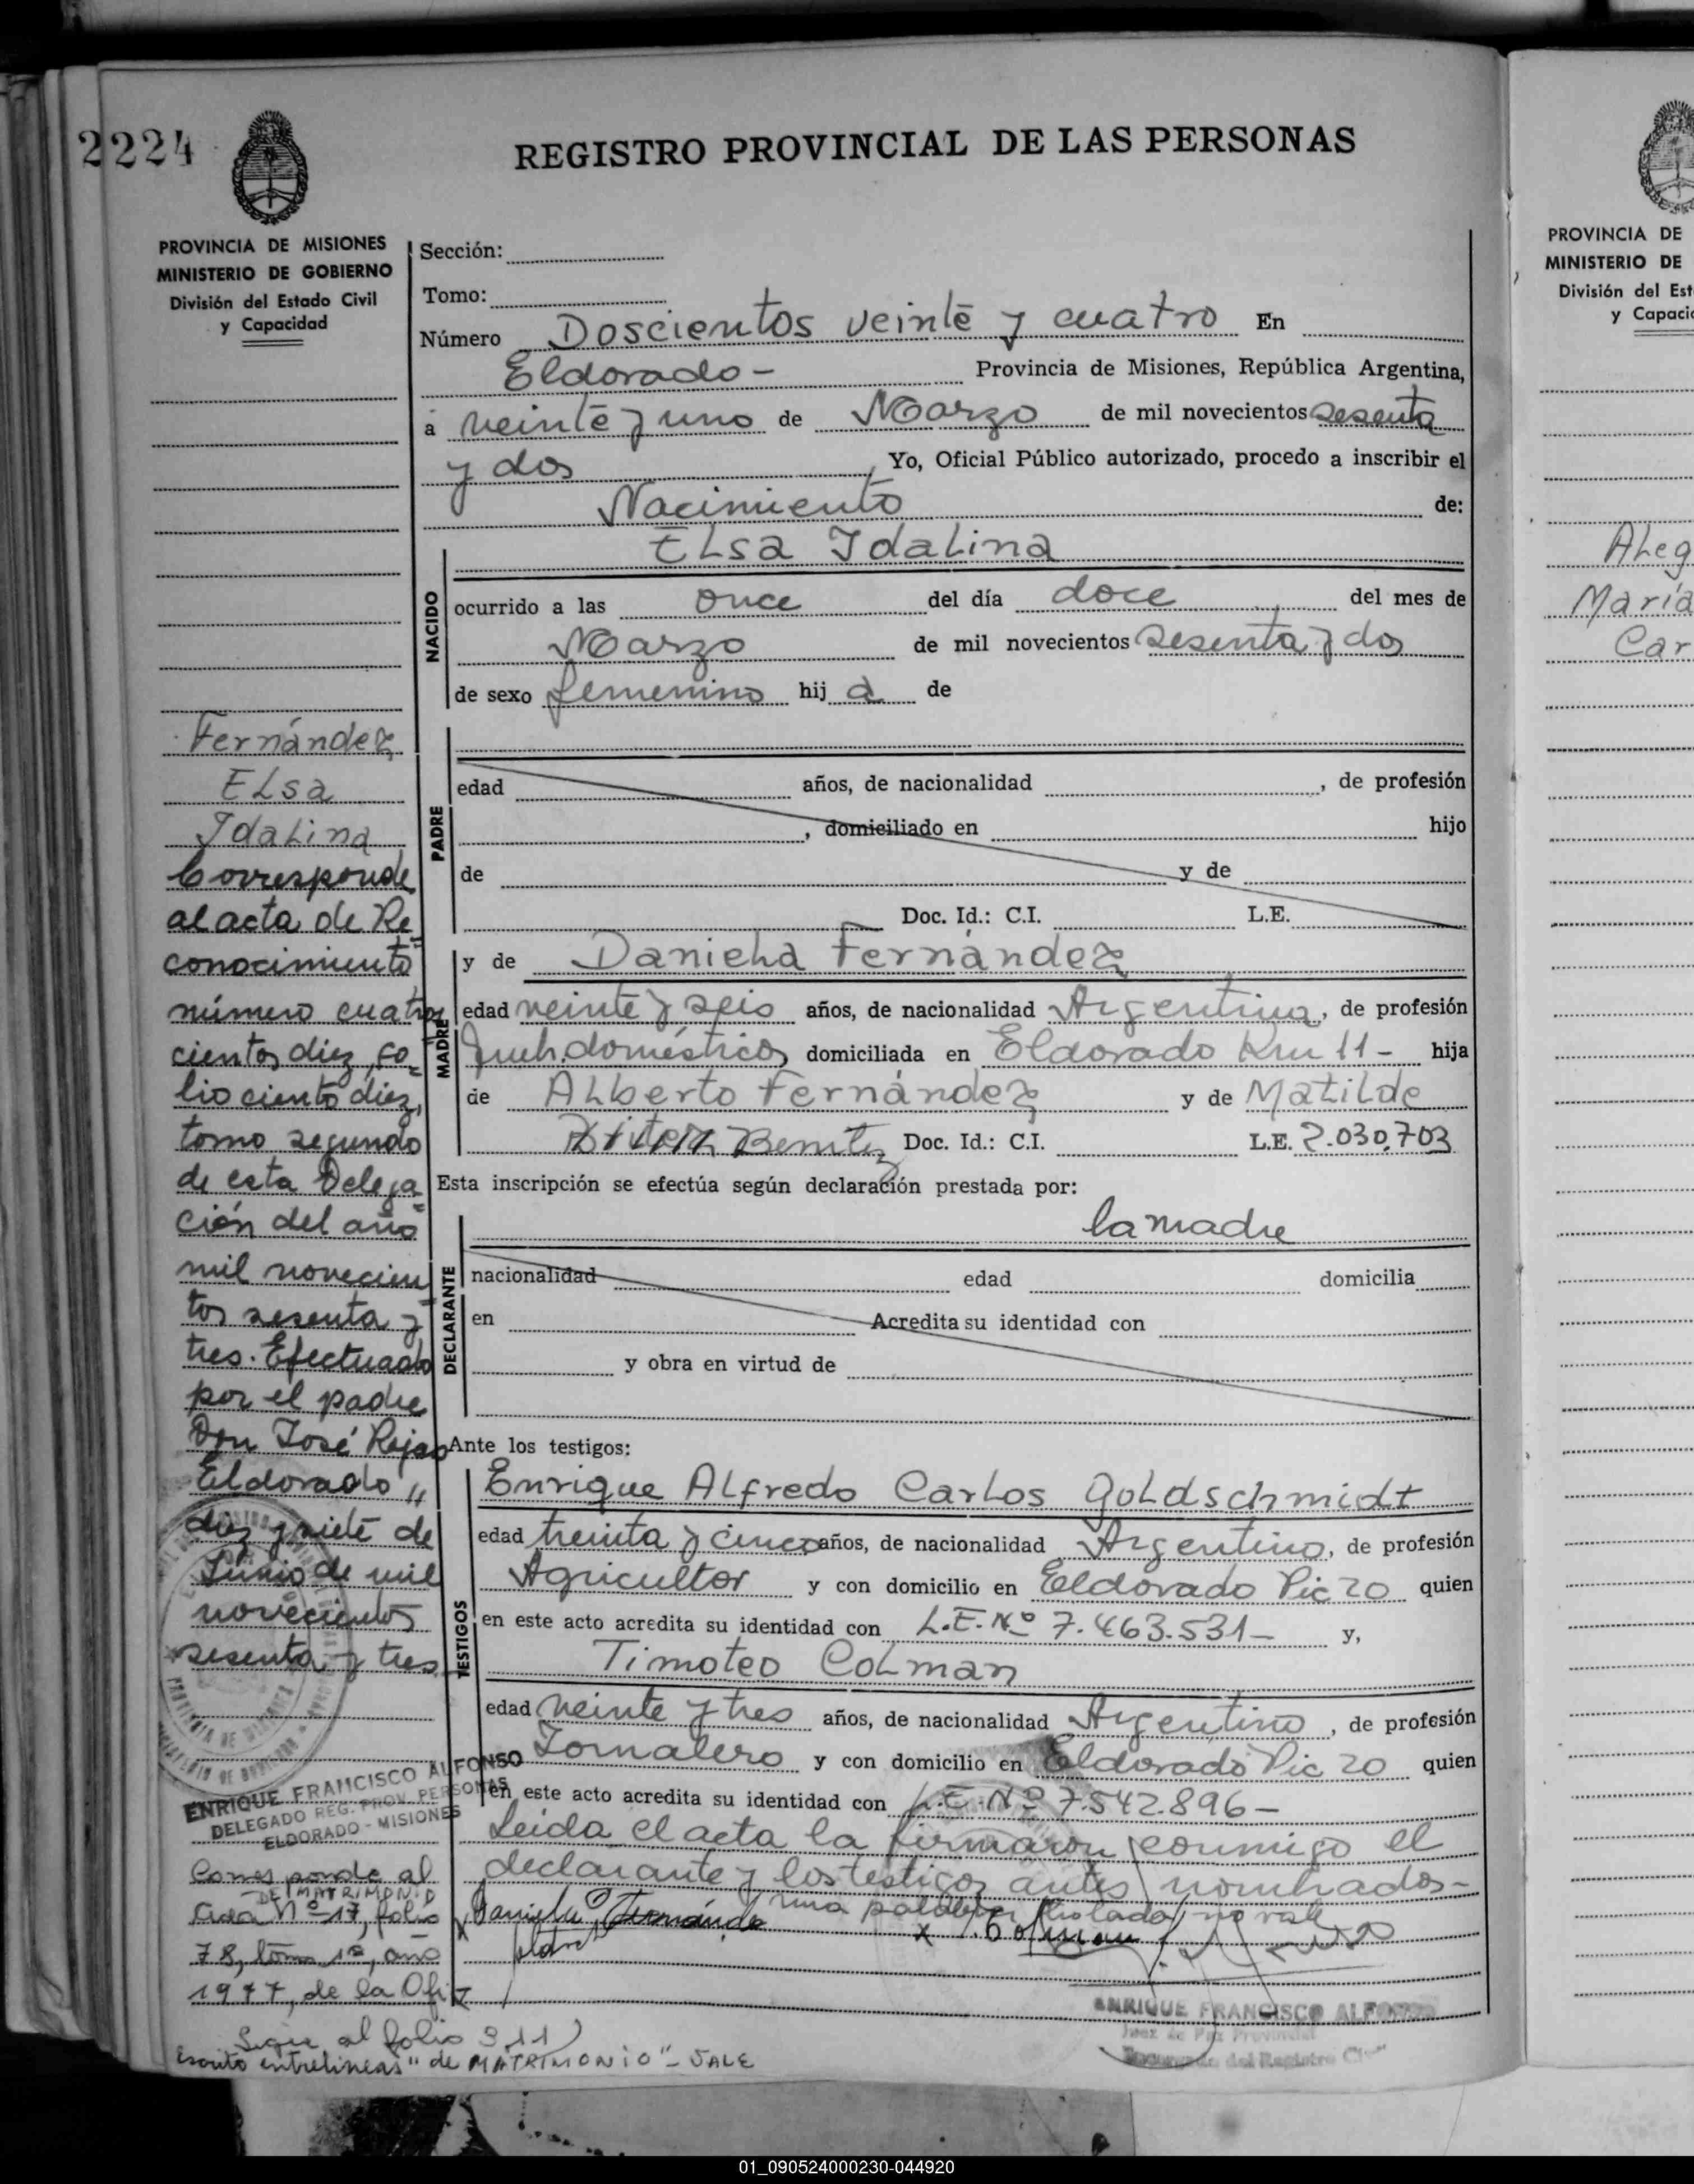 2224
REGISTRO PROVINCIAL DE LAS PERSONAS
PROVINCIA DE MISIONES
MINISTERIO DE GOBIERNO
División del Estado Civil
y Capacidad
Sección:
Tomo:
Número Doscientos veinte y cuatro En
Eldorado - Provincia de Misiones, República Argentina,
a veinte y uno de Marzo de mil novecientos sesenta
y dos, Yo, Oficial Público autorizado, procedo a inscribir el
Nacimiento de:
Elsa Idalina
NACIDO
ocurrido a las once del día doce del mes de
Marzo de mil novecientos sesenta y dos
de sexo femenino hij a de
PADRE
edad años, de nacionalidad , de profesión
, domiciliado en hijo
de y de
Doc. Id.: C.I. L.E.
MADRE
y de Daniela Fernández
edad veinte y seis años, de nacionalidad Argentina, de profesión
Queh. domésticos domiciliada en Eldorado Km 11 - hija
de Alberto Fernández y de Matilde
Benitez Doc. Id.: C.I. L.E. 2.030.703
Esta inscripción se efectúa según declaración prestada por:
la madre
DECLARANTE
nacionalidad edad domicilia
en Acredita su identidad con
y obra en virtud de
Ante los testigos:
TESTIGOS
Enrique Alfredo Carlos Goldschmidt
edad treinta y cinco años, de nacionalidad Argentino, de profesión
Agricultor y con domicilio en Eldorado Pic 20 quien
en este acto acredita su identidad con L.E. Nº 7.463.531 - y,
Timoteo Colman
edad veinte y tres años, de nacionalidad Argentino, de profesión
Jornalero y con domicilio en Eldorado Pic 20 quien
en este acto acredita su identidad con L.E. Nº 7.542.896 -
Leida el acta la firmaron conmigo el
declarante y los testigos antes nombrados -
una palabra no vale
Daniela Fernández
x T. Colman
ENRIQUE FRANCISCO ALFONSO
Juez de Paz Provincial
Encargado del Registro Civil
Fernández
Elsa
Idalina
Corresponde
al acta de Re=
conocimiento
número cuatro
cientos diez, fo=
lio ciento diez,
tomo segundo
de esta Delega=
ción del año
mil novecien=
tos sesenta y
tres. Efectuado
por el padre
Don José Rojas
Eldorado
diez y siete de
Junio de mil
novecientos
sesenta y tres
ENRIQUE FRANCISCO ALFONSO
DELEGADO REG. PROV. PERSONAS
ELDORADO - MISIONES
Corresponde al
DE MATRIMONIO
Acta Nº 17, folio
78, tomo 1º, año
1977, de la Ofi
Sigue al folio 311)
Escrito entrelineas "de MATRIMONIO" - VALE
PROVINCIA DE
MINISTERIO DE
División del Est
y Capaci
Aleg
María
Car
01_090524000230-044920